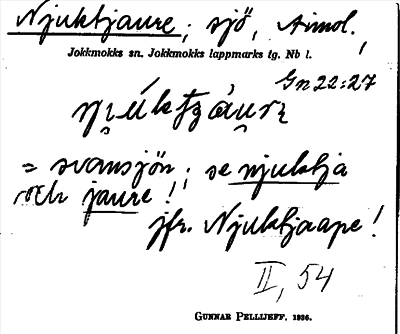 Njuktjaure; sjö, Aimol.,
Jokkmokks sn. Jokkmokks lappmarks tg. Nb l.
Gn 22:27
= svansjön; se njuktja
och jaure!
jfr. Njuktjaape!
II, 54
GUNNAR PELLIJEFF. 1936.